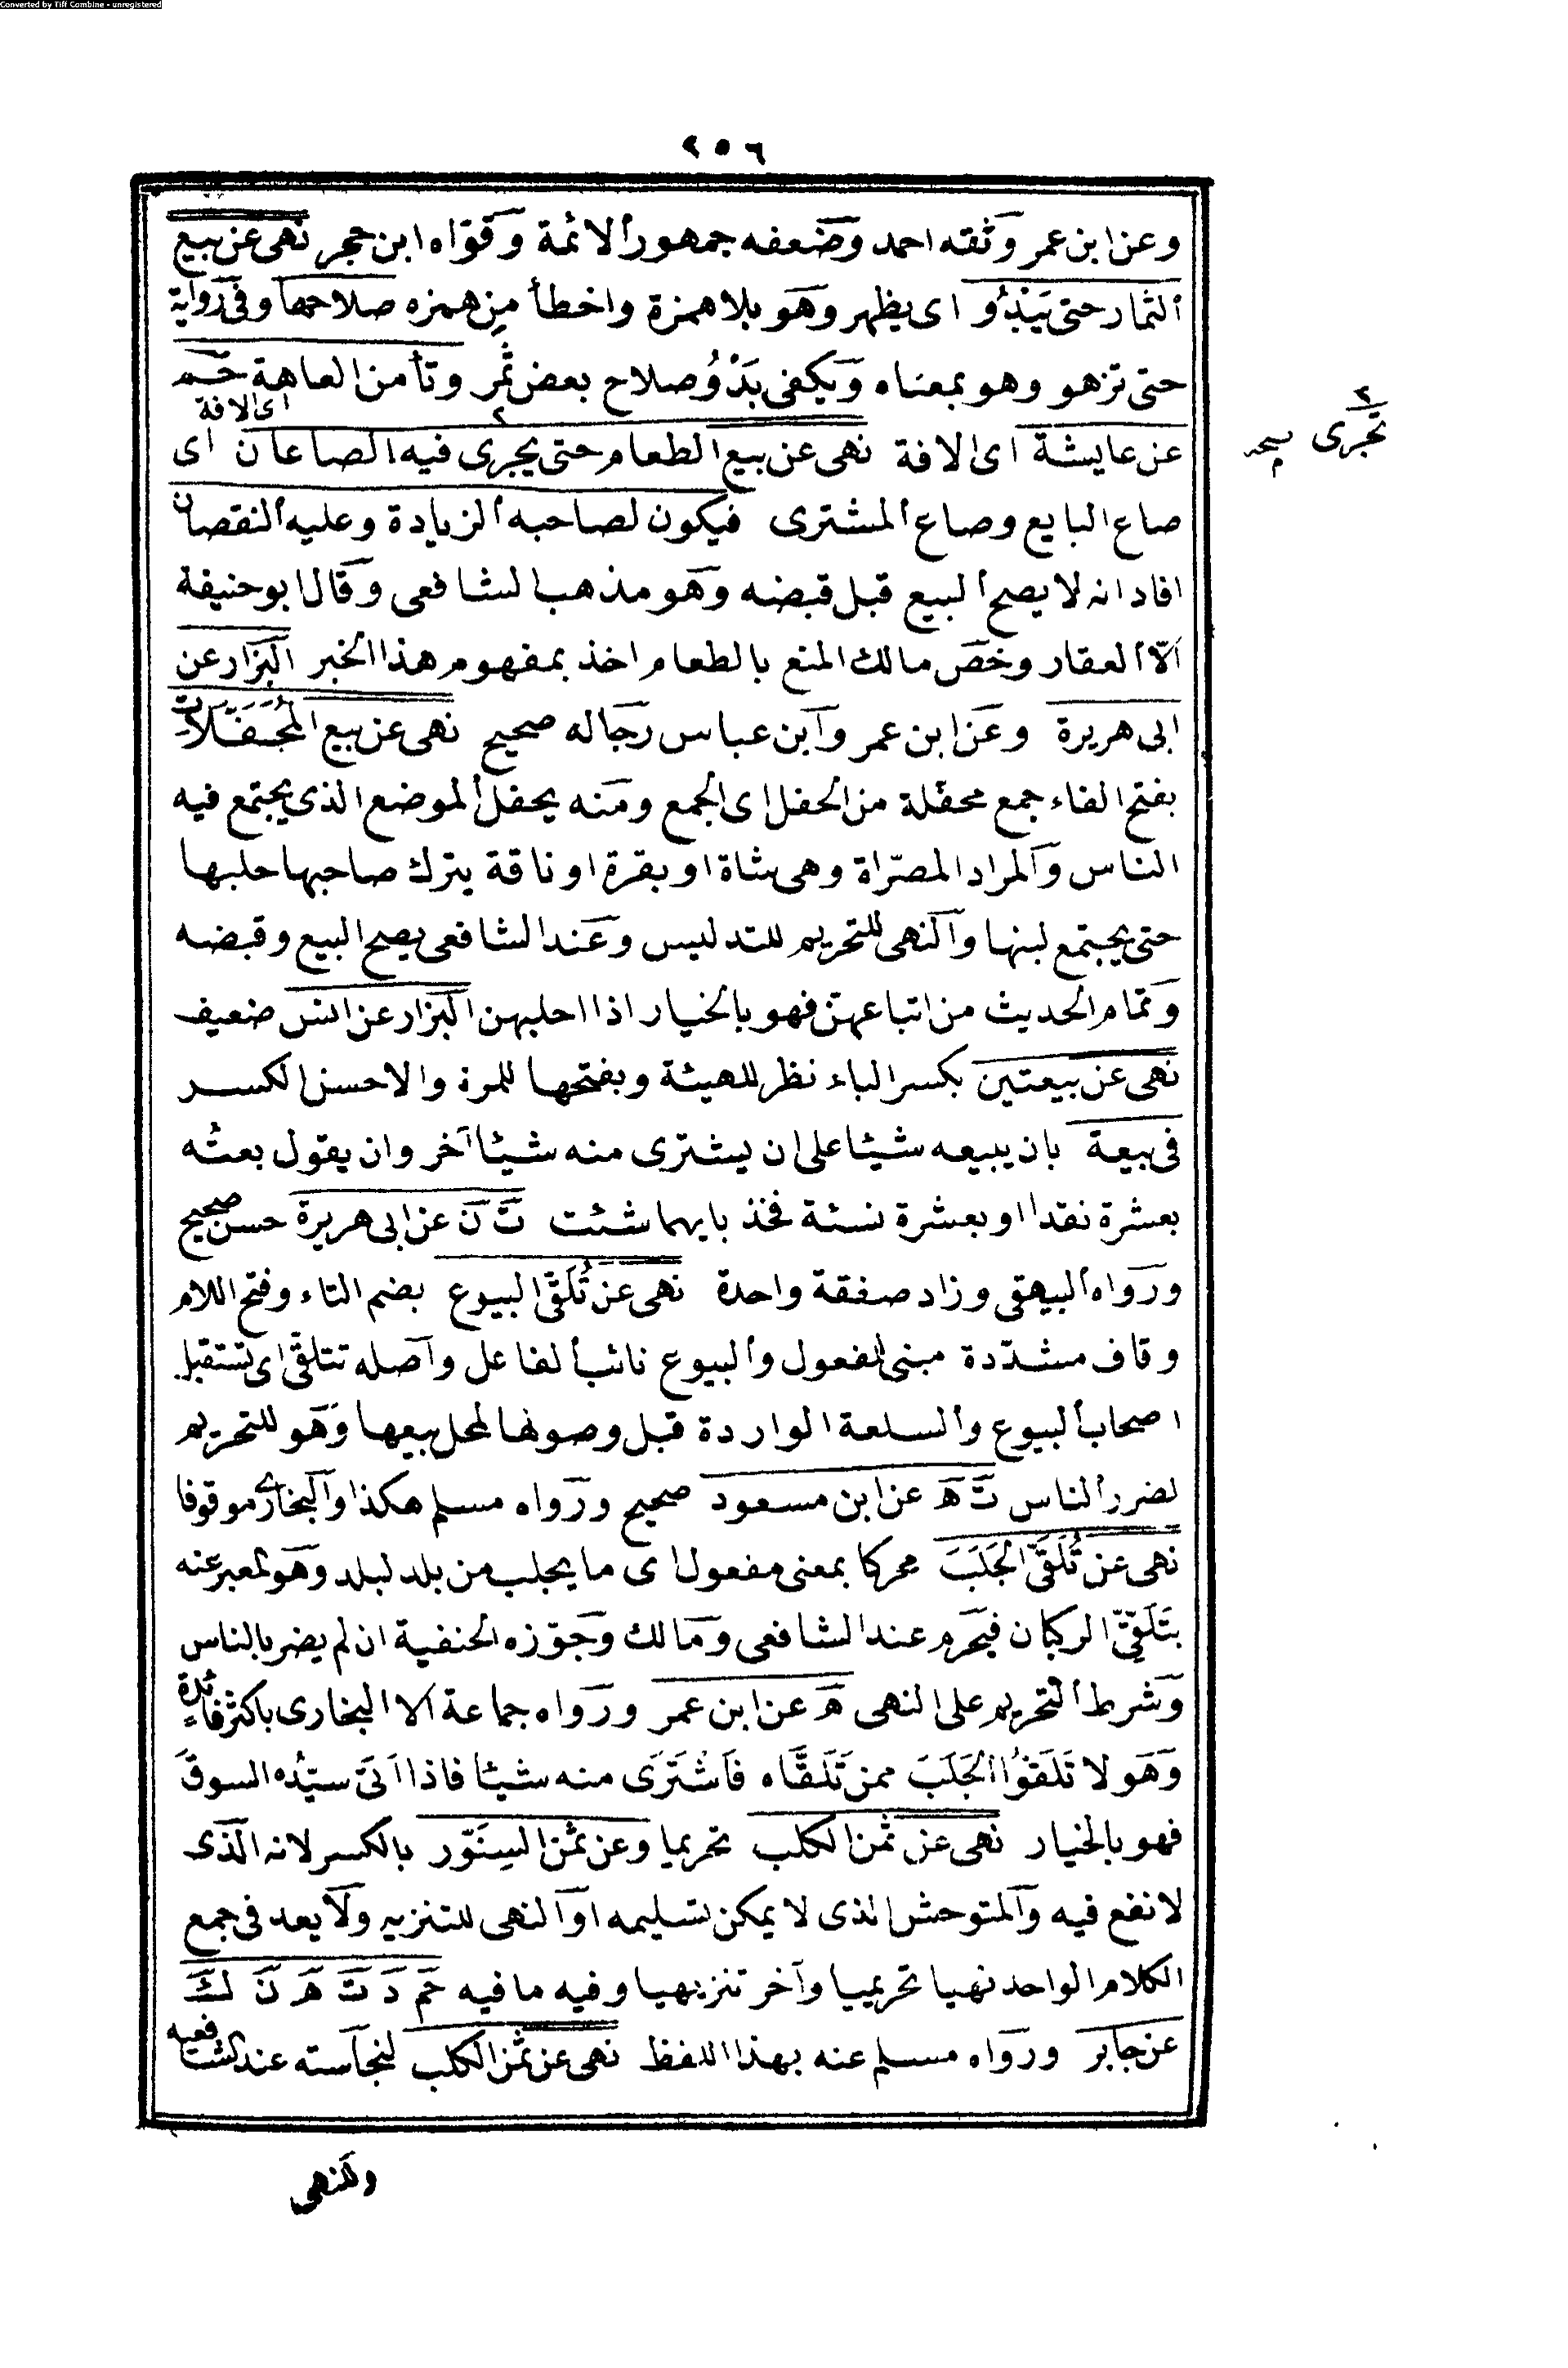 Converted by Tiff Combine - unregistered
٢٥٦
وعن ابن عمر وثقه احمد وضعفه جمهور الائمة وقواه ابن حجر نهى عن بيع
الثمار حتى يَبْدُو اى يظهر وهو بلا همزة واخطأ من همزه صلاحها وفى رواية
حتى تزهو وهو بمعناه ويكفى بَدْوُ صلاح بعض ثمر وتأمن العاهة حم
اى الافة
عن عايشة اى الافة نهى عن بيع الطعام حتى يجرى فيه الصاعان اى
٢ تجرى نسخه
صاع البايع وصاع المشترى فيكون لصاحبه الزيادة وعليه النقصان
افاد انه لا يصح البيع قبل قبضه وهو مذهب الشافعى وقال ابو حنيفة
الّا العقار وخصّ مالك المنع بالطعام اخذ بمفهوم هذا الخبر البزار عن
ابى هريرة وعن ابن عمر وابن عباس رجاله صحيح نهى عن بيع المُحَفَّلَاتِ
بفتح الفاء جمع محفّلة من الحفل اى الجمع ومنه يحفل الموضع الذى يجتمع فيه
الناس والمراد المصرّاة وهى شاة او بقرة او ناقة يترك صاحبها حلبها
حتى يجتمع لبنها والنهى للتحريم للتدليس وعند الشافعى يصح البيع وقبضه
وتمام الحديث من اتباعهن فهو بالخيار اذا احلبهن البزار عن انس ضعيف
نهى عن بيعتين بكسر الباء نظر للهيئة وبفتحها للمرة والاحسن الكسر
فى بيعة بان يبيعه شيئا على ان يشترى منه شيئا آخر وان يقول بعته
بعشرة نقدا او بعشرة نسئة فخذ بايهما شئت ت ن عن ابى هريرة حسن صحيح
ورواه البيهقى وزاد صفقة واحدة نهى عن تُلَقَّى البيوع بضم التاء وفتح اللام
وقاف مشدّدة مبنى المفعول والبيوع نائب الفاعل واصله تتلقى اى تستقبل
اصحاب البيوع والسلعة الواردة قبل وصولها لمحل بيعها وهو للتحريم
لضرر الناس ت ه عن ابن مسعود صحيح ورواه مسلم هكذا والبخارى موقوفا
نهى عن تُلَقَّى الجَلَبَ محركا بمعنى مفعول اى ما يجلب من بلد لبلد وهو المعبر عنه
بتَلَقِّى الركبان فيحرم عند الشافعى ومالك وجوّزه الحنفية ان لم يضر بالناس
وشرط التحريم على النهى ه عن ابن عمر ورواه جماعة الا البخارى باكثر فائدة
وهو لا تَلَقَوُا الجَلَبَ ممن تَلَقَّاه فَاشْتَرَى منه شيئا فاذا اتى سيّده السوقَ
فهو بالخيار نهى عن ثمن الكلب تحريما وعن ثمن السِنَّور بالكسر لانه الّذى
لا نفع فيه والمتوحش الذى لا يمكن تسليمه او النهى للتنزيه ولا بعد فى جمع
الكلام الواحد نهيا تحريميا وآخر تنزيهيا وفيه ما فيه حم د ت ه ن ك
عن جابر ورواه مسلم عنه بهذا اللفظ نهى عن ثمن الكلب لنجاسته عند الشافعيه
والنهى